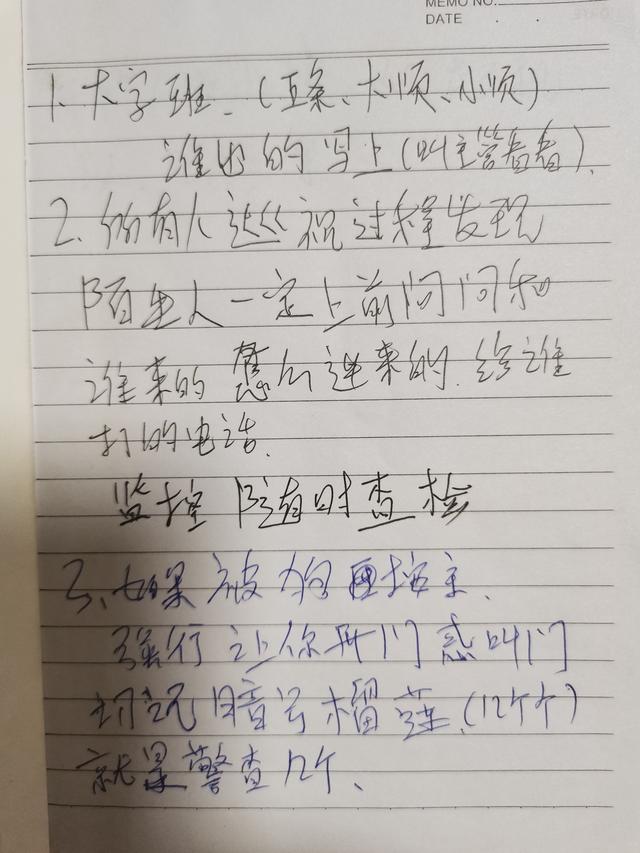 MEMO NO.
DATE . .
1. 大字班.(五条、大顺、小顺)
谁出的写上(叫主管看着).
2. 所有人巡视过程发现
陌生人一定上前问问和
谁来的 怎么进来的.给谁
打的电话.
监控随时查检
3、如果被 控主.
强行让你开门 叫门
切记暗号榴莲.(12个个)
就是警查几个、